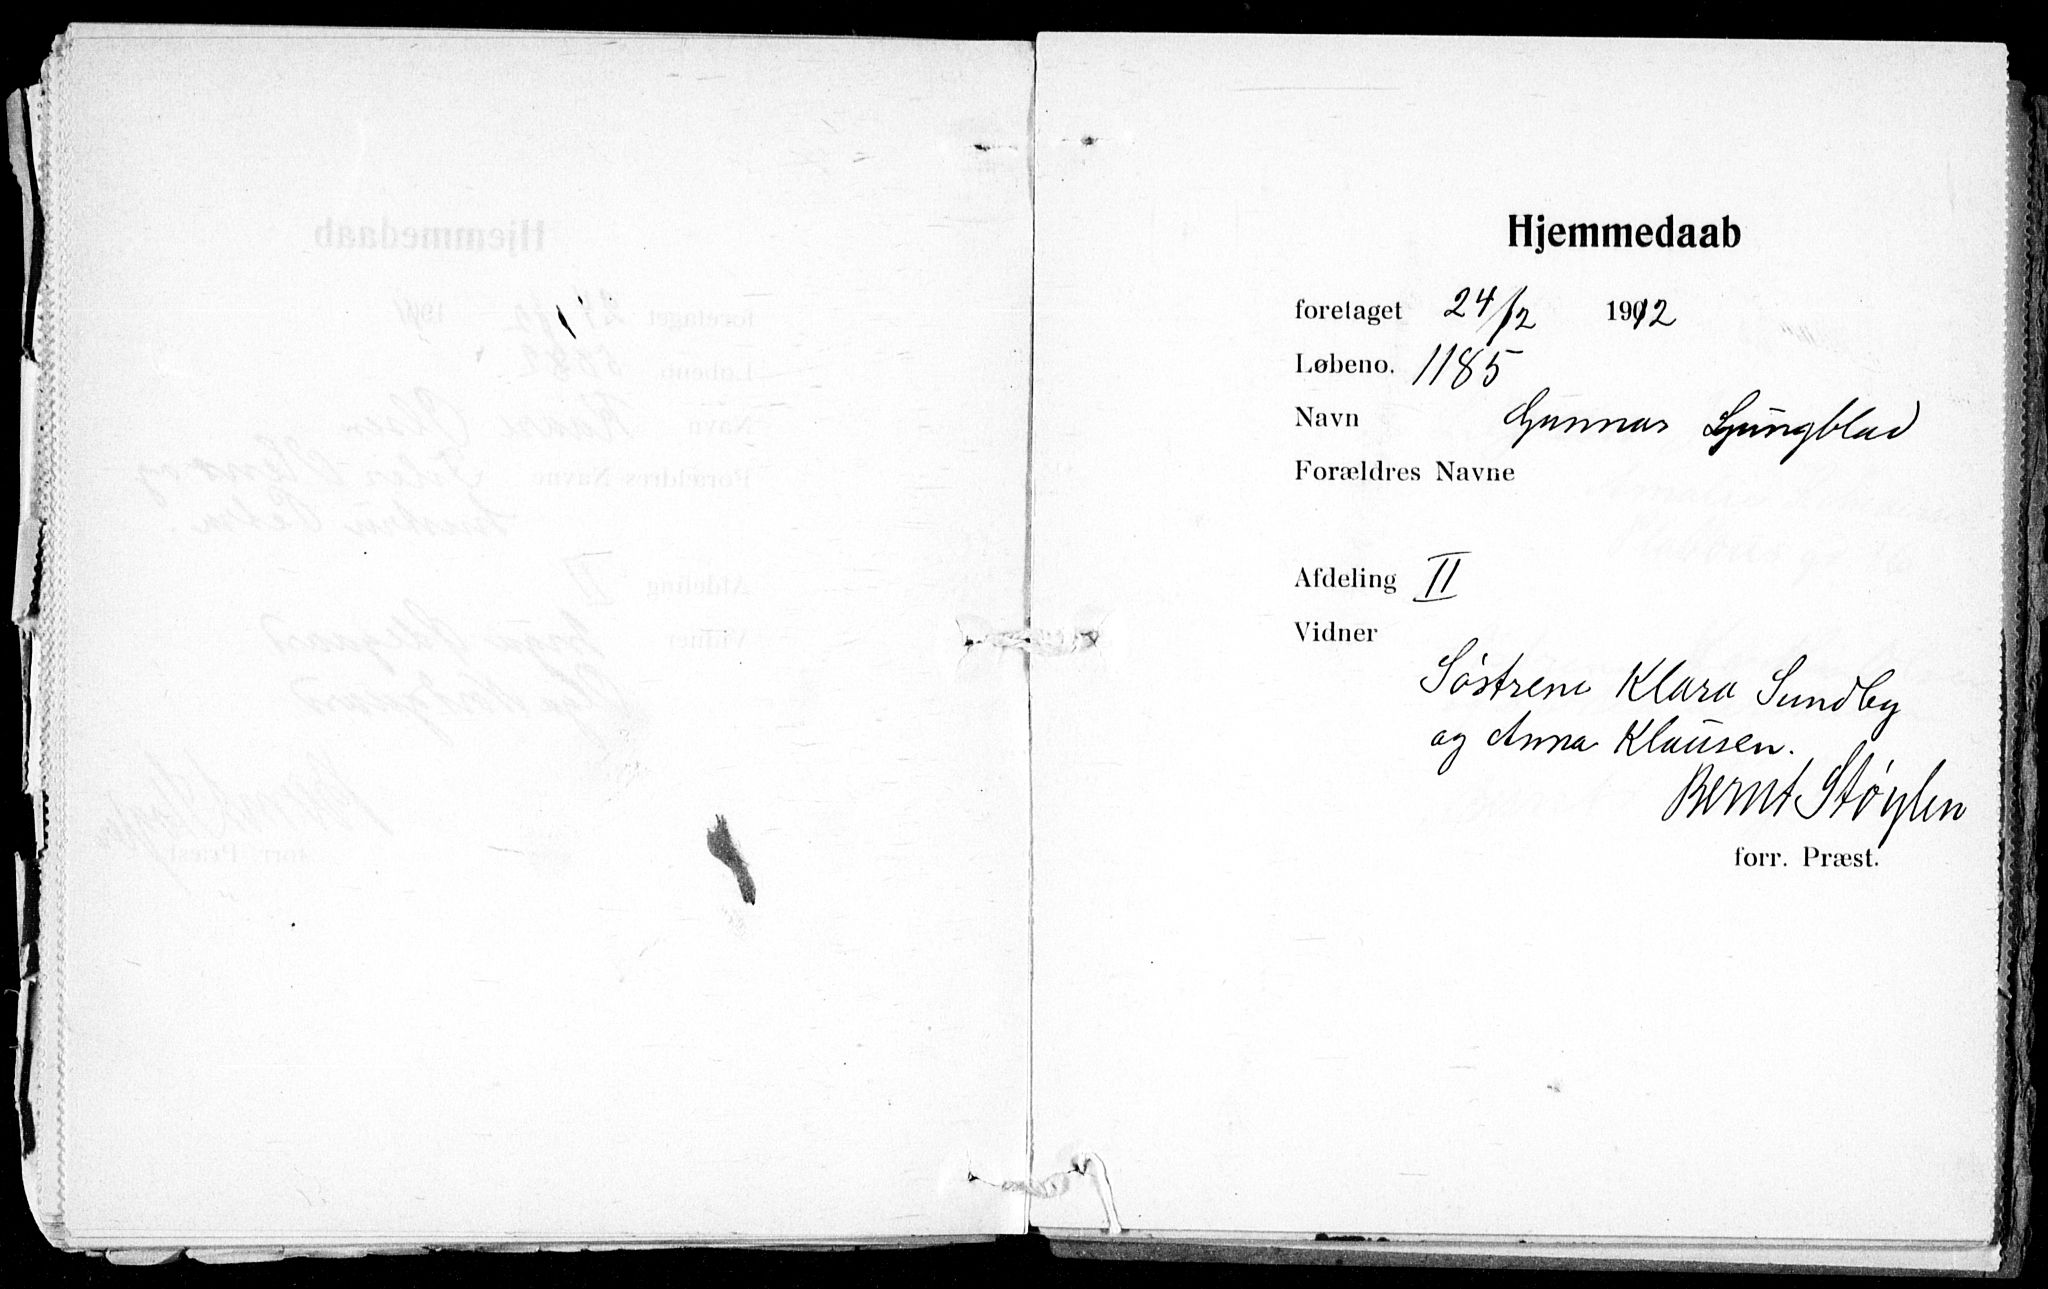 Hjemmedaab
foretaget 24/2 1912
Løbeno. 1185
Navn Gunnar Ljungblad
Forældres Navne
Afdeling II
Vidner
Søstrene Klara Sundby
og Anna Klausen.
Bernt Støylen
forr. Præst.